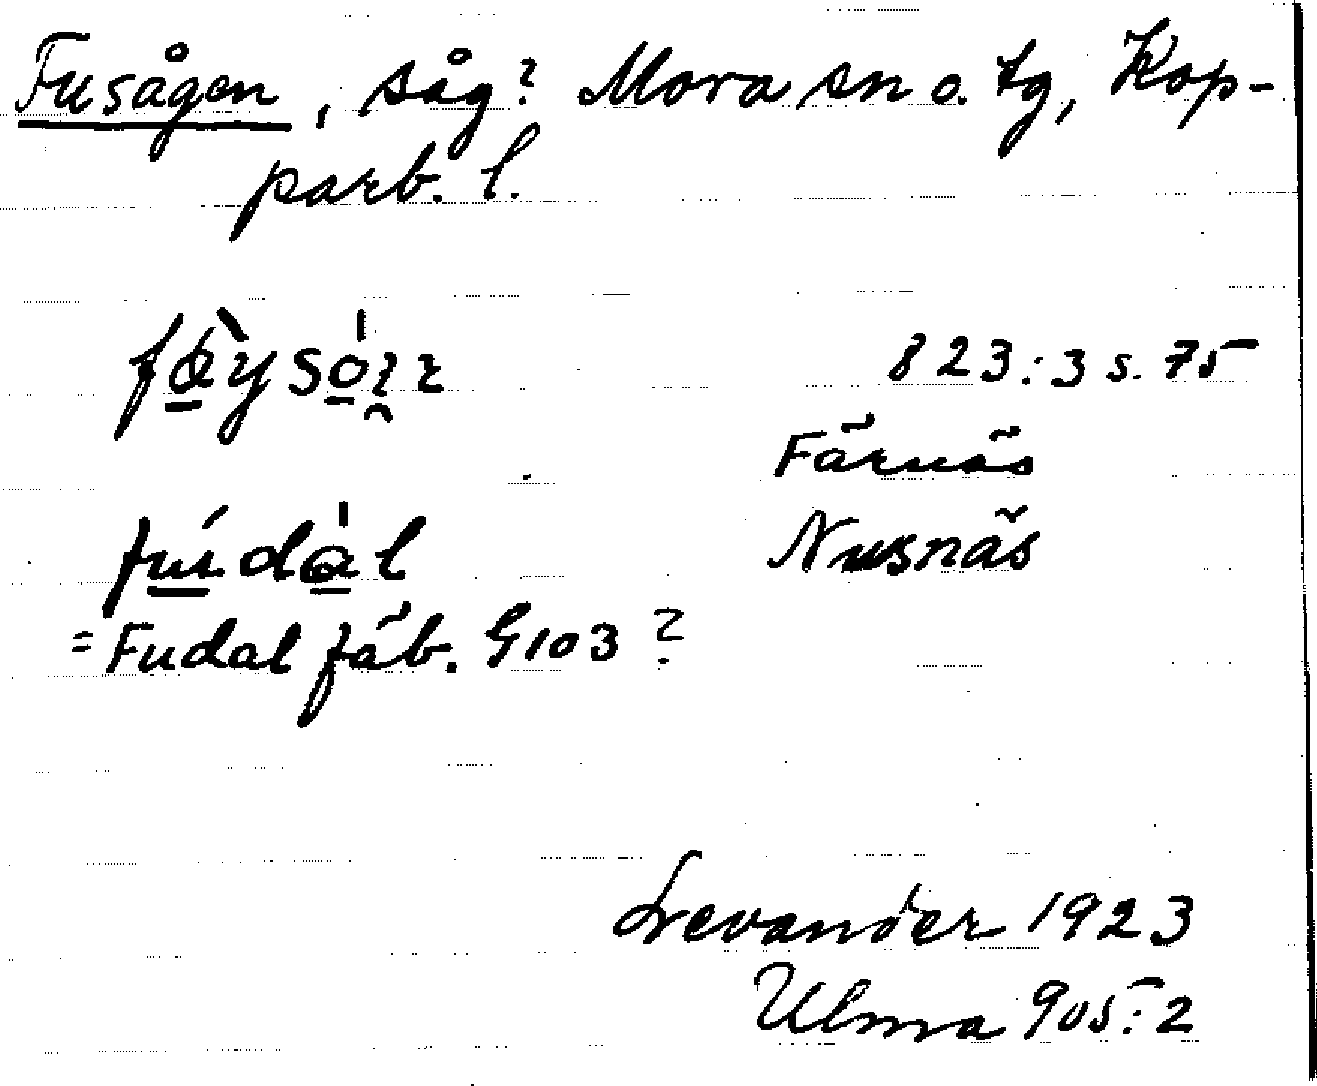 Fusågen, såg? Mora sn o. tg, Kop-
parb. l.
823:3 s. 75
Färnäs
Nusnäs
= Fudal fäb. G103?
Levander 1923
Ulma 905:2